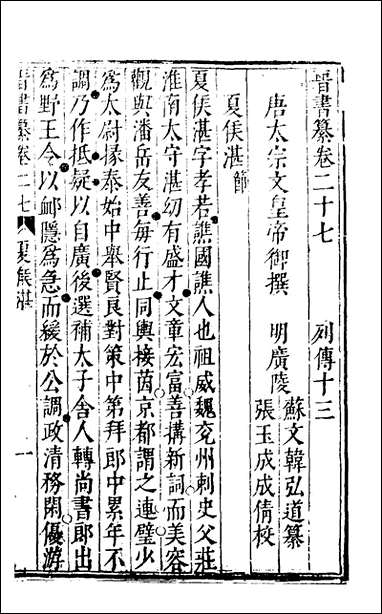 晉書纂卷二十七　　　列傳十三
唐太宗文皇帝御撰　明廣陵蘇文韓弘道纂
張玉成成倩校
夏侯湛節
夏侯湛字孝若譙國譙人也祖威魏兖州刺史父莊
淮南太守湛幼有盛才文章宏富善搆新詞而美容
觀與潘岳友善每行止同輿接茵京都謂之連璧少
為太尉掾泰始中舉賢良對策中第拜郎中累年不
調乃作抵疑以自廣後選補太子舍人轉尚書郎出
為野王令以卹隱為急而緩於公調政清務閑優游
晉書纂卷二七　夏侯湛　一